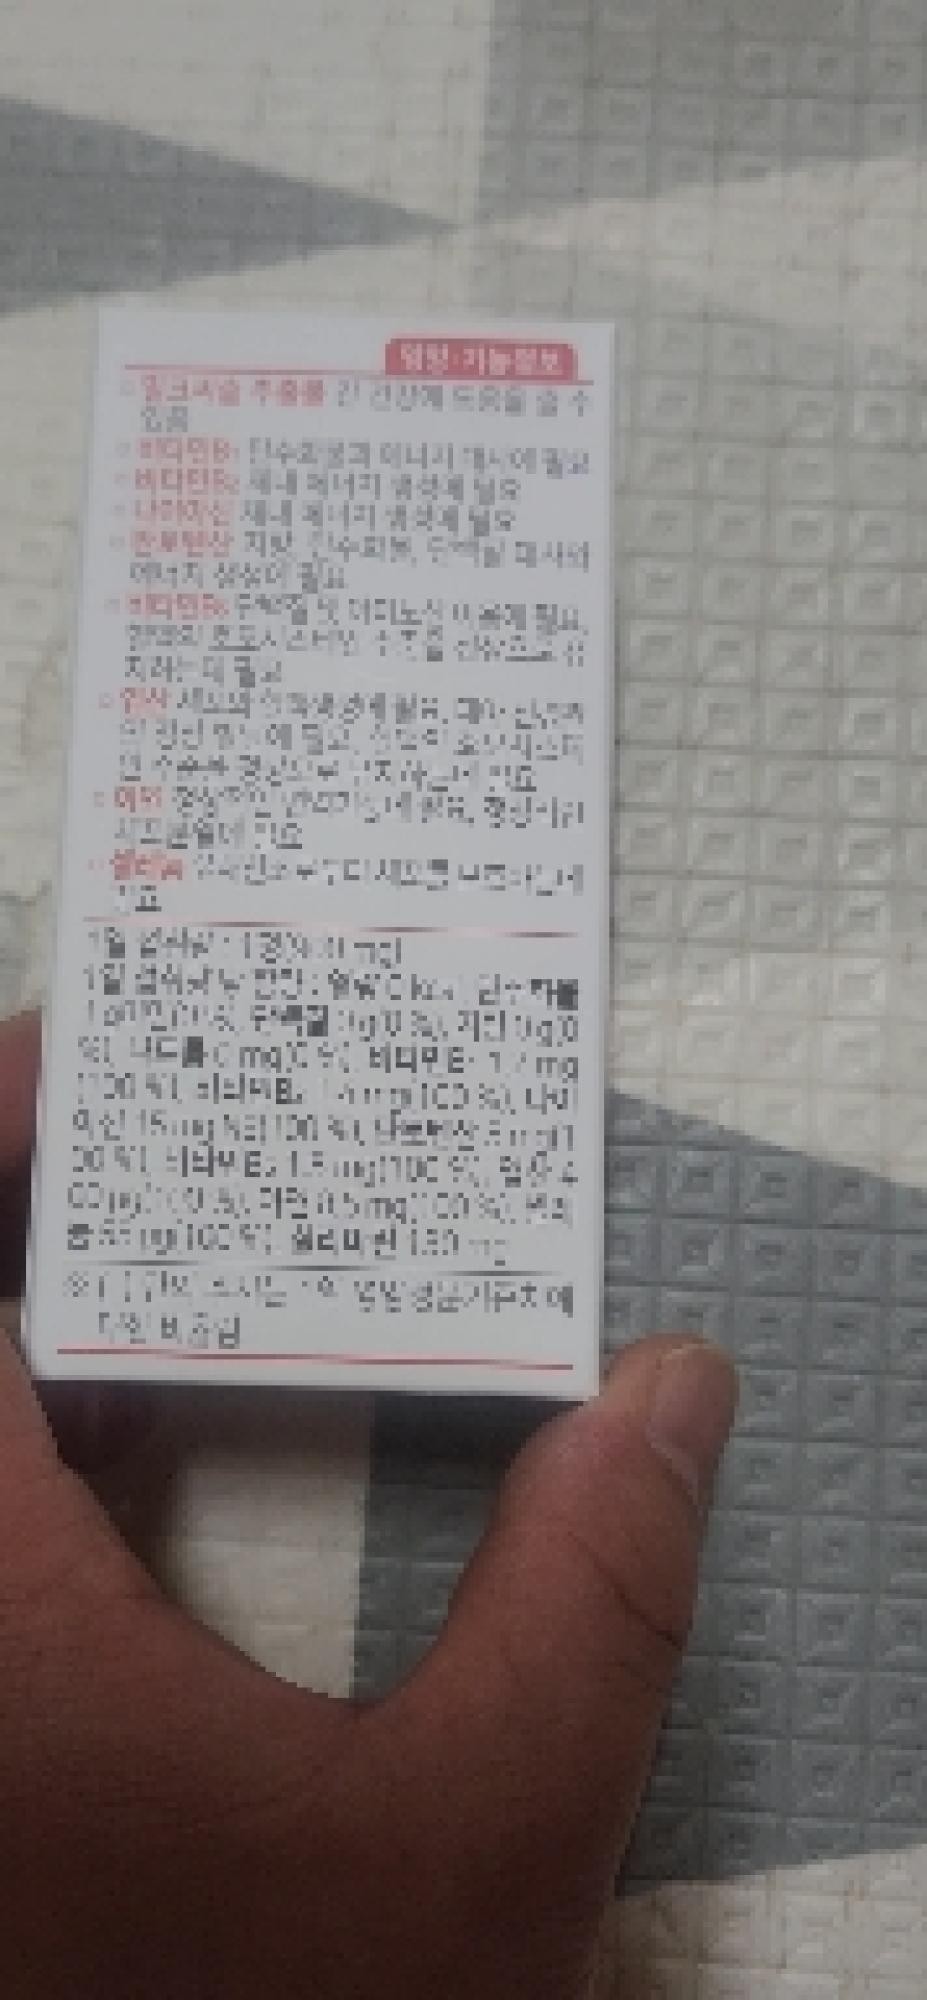 영양·기능정보
밀크씨슬 추출물 간 건강에 도움을 줄 수
있음
비타민B₁ 탄수화물과 에너지 대사에 필요
비타민B₂ 체내 에너지 생성에 필요
나이아신 체내 에너지 생성에 필요
판토텐산 지방, 탄수화물, 단백질 대사와
에너지 생성에 필요
비타민B₆ 단백질 및 아미노산 이용에 필요,
혈액의 호모시스테인 수준을 정상으로 유
지하는데 필요
엽산 세포와 혈액생성에 필요, 태아 신경관
의 정상 발달에 필요, 혈액의 호모시스테
인 수준을 정상으로 유지하는데 필요
아연 정상적인 면역기능에 필요, 정상적인
세포분열에 필요
셀레늄 유해산소로부터 세포를 보호하는데
필요
1일 섭취량 : 1정 mg)
1일 섭취량 당 함량 : 열량 0 kcal, 탄수화물
단백질 0 g(0 %), 지방 0 g(0
%), 나트륨 0 mg(0 %), 비타민B₁ 1.2 mg
(100 %), 비타민B₂ 1.4 mg(100 %), 나이
아신 15 mg NE(100 %), 판토텐산 5 mg(1
00 %), 비타민B₆ 1.5 mg(100 %), 엽산 4
00 μg(100 %), 아연 8.5 mg(100 %), 셀레
늄 55 μg(100 %), 실리마린 130 mg
※ ( ) 안의 수치는 1일 영양성분기준치에
대한 비율임